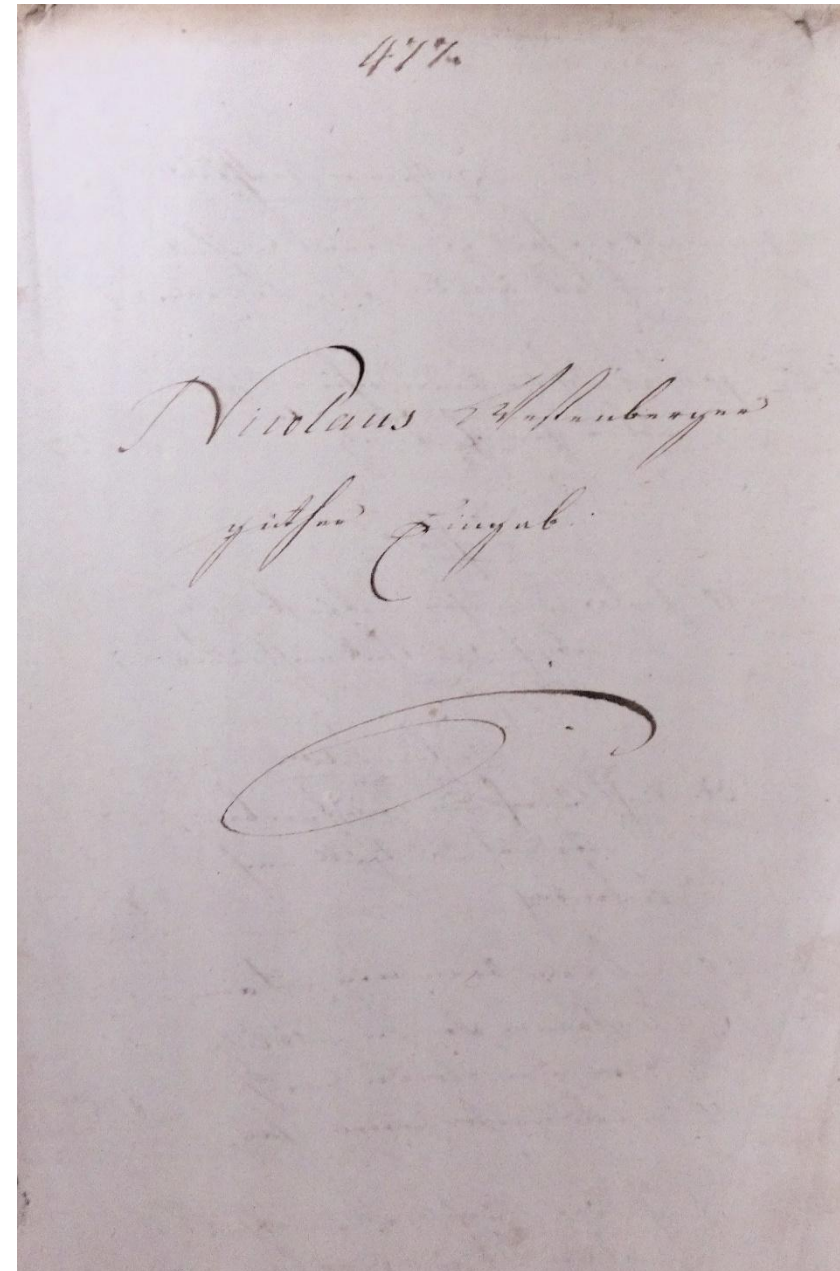 477.
Nicolaus Westenberger
güther Eingab.